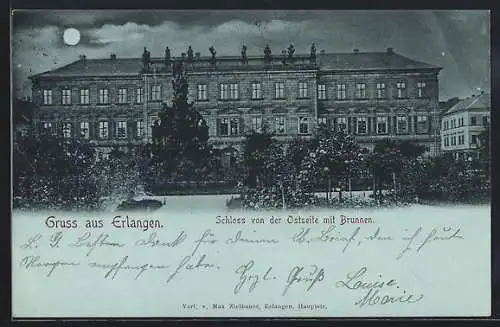 Gruss aus Erlangen.
Schloss von der Ostseite mit Brunnen.
L. G. Besten Dank für deinen lb. Brief, den ich heute
Morgen empfangen habe.
Hrzl. Gruß Louise.
Marie
Verl. v. Max Zielbauer, Erlangen, Hauptstr.